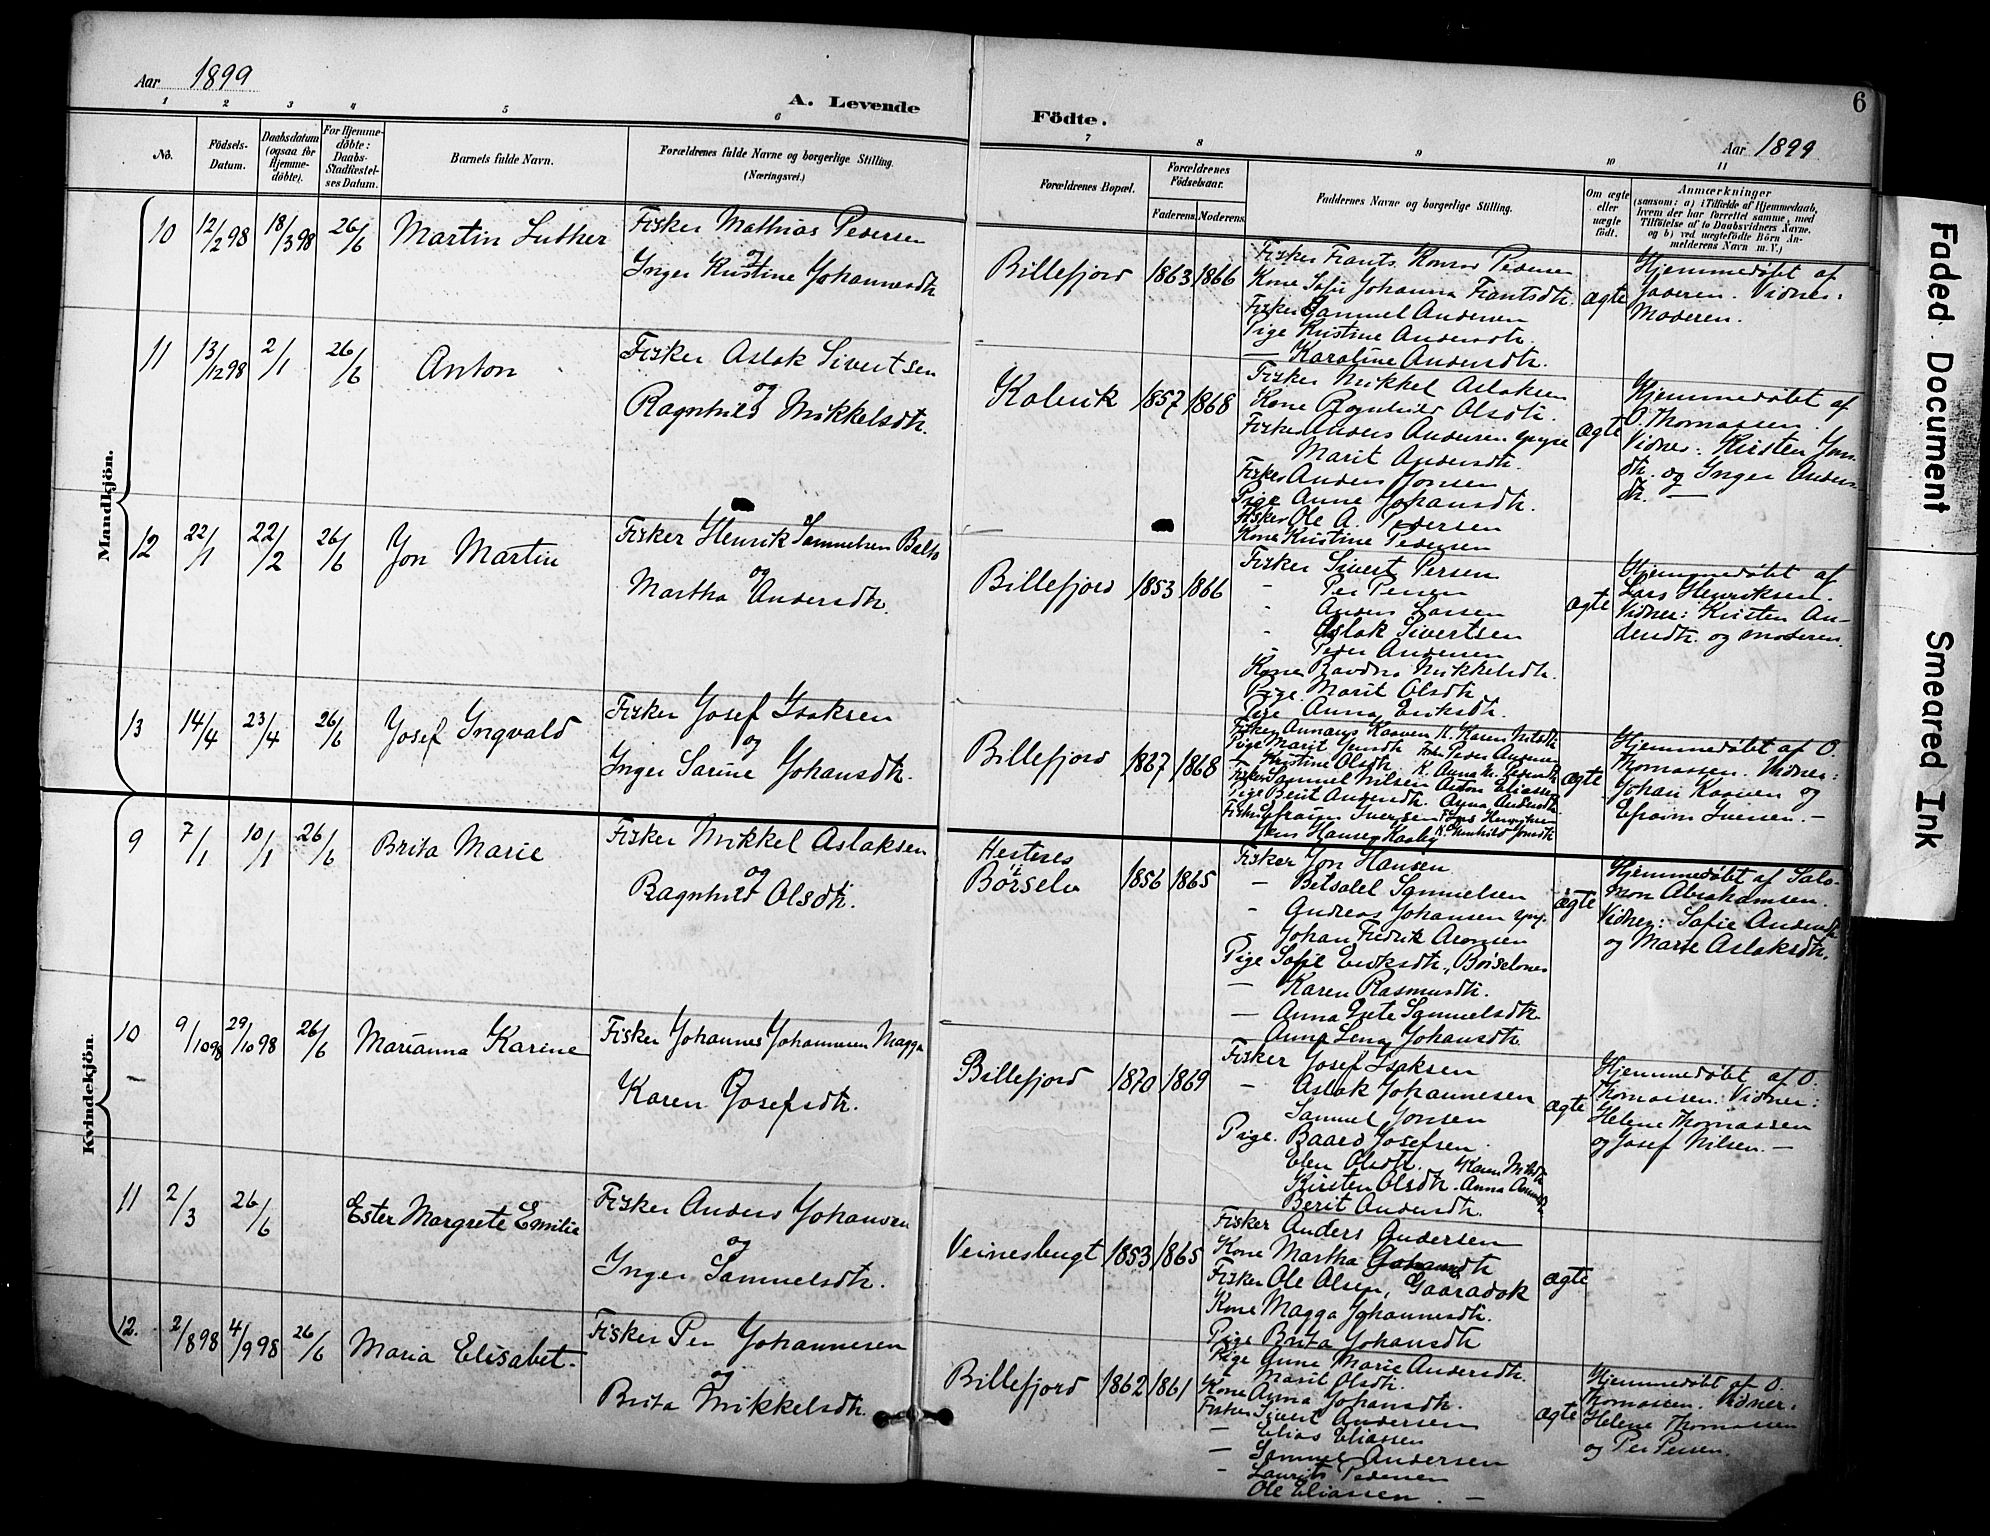 Aar 1899
A. Levende
Födte.
6
Aar 1899
1 2 3 4 5 6 7 8 9 10 11
No.
Födsels-Datum.
Daabsdatum (ogsaa for Hjemme-döbte).
For Hjemme-döbte: Daabs-Stadfæstel-ses Datum.
Barnets fulde Navn.
Forældrenes fulde Navne og borgerlige Stilling.
(Næringsvei.)
Forældrenes Bopæl.
Forældrenes Födselsaar.
Faderens. Moderens.
Faddernes Navne og borgerlige Stilling.
Om ægte eller uægte født.
Anmærkninger
(saasom: a) i Tilfælde af Hjemmedaab,
hvem der har forrettet samme, med
Tilföielse af to Daabsvidners Navne.
og b) ved uægtefödte Börn An-
melderens Navn m. V.)
Mandkjön.
10 12/2 98 18/3 98 26/6 Martin Luther
Fisker Mathias Pedersen
og
Inger Kristine Johannesdtr
Billefjord 1863 1866
Fisker Frants Konrad Pedersen
Kone Sofie Johanna Frantsdtr.
Fisker Samuel Andersen
Pige Kristine Andersdtr
— Karoline Andersdtr.
ægte
Hjemmedøbt af
faderen. Vidner:
Moderen.
11 13/12 98 2/1 26/6 Anton
Fisker Aslak Sivertsen
og
Ragnhild Mikkelsdtr.
Kolvik 1857 1868
Fisker Mikkel Aslaksen
Kone Ragnhild Olsdtr.
Fisker Anders Andersen yngre
Marit Andersdtr.
Fisker Anders Jonsen
Pige Anne Johansdtr.
Fisker Ole A. Pedersen
Kone Kristine Pedersen
ægte
Hjemmedøbt af
O. Thomassen.
Vidner: Kirsten Jons-
dtr. og Inger Anders-
dtr. —
12 22/1 22/2 26/6 Jon Martin
Fisker Henrik Samuelsen Balto
og
Martha Andersdtr.
Billefjord 1853 1866
Fisker Sivert Persen
- Per Persen
- Anders Larsen
- Aslak Sivertsen
- Peder Andersen
Kone Ravdna Mikkelsdtr.
Pige Marit Olsdtr.
Pige Anna Eriksdtr.
ægte
Hjemmedøbt af
Lars Henriksen.
Vidner: Kirsten An-
dersdtr. og moderen.
13 14/4 23/4 26/6 Josef Ingvald
Fisker Josef Isaksen
og
Inger Sarine Johansdtr.
Billefjord 1867 1868
Pige Marit Jonsdtr Peder Andersen
— Kristine Olsdtr.
Fisker Samuel Nilsen Anton Eliassen
Pige Berit Andersdtr. Anna Andersdtr.
Fisker Efraim Iversen
Jens Hansen Kaaby
ægte
Hjemmedøbt af O.
Thomassen. Vidner:
Johan Kaaven og
Efraim Iversen. —
Kvindekjön.
9 7/1 10/1 26/6 Brita Marie
Fisker Mikkel Aslaksen
og
Ragnhild Olsdtr.
Hestnes
i
Børselv 1856 1865
Fisker Jon Hansen
— Betsalel Samuelsen
- Andreas Johansen yng.
Johan Fredrik Aronsen
Pige Sofie Eriksdtr., Børselvnes
— Karen Rasmusdtr.
— Anna Grete Samuelsdtr
Anna Lena Johansdtr.
ægte
Hjemmedøbt af Salo-
mon Abrahamsen.
Vidner: Sofie Andersdtr
og Marie Aslaksdtr.
10 9/10 98 29/10 98 26/6 Marianna Karine
Fisker Johannes Johannesen Magga
og
Karen Josefsdtr.
Billefjord 1870 1869
Fisker Josef Isaksen
- Aslak Johannesen
Samuel Jonsen
Baard Josefsen
Pige. Elen Olsdtr. Karen Nilsdtr
Kirsten Olsdtr.
Berit Andersdtr.
ægte
Hjemmedøbt af O.
Thomassen. Vidner:
Helene Thomassen
og Josef Nilsen. —
11 2/3 26/6 Ester Margrete Emilie
Fisker Anders Johansen
og
Inger Samuelsdtr.
Veinesbugt 1853 1865
Fisker Anders Andersen
Kone Martha
Fisker Ole Olsen, Gaaradak
Kone Magga Johannesdtr.
Pige Brita Johansdtr
ægte
12. 2/8 98 4/9 98 26/6 Maria Elisabet.
Fisker Per Johannesen
og
Brita Mikkelsdtr.
Billefjord 1862 1861
Pige Anne Marie Andersdtr.
Marit Olsdtr.
Kone Anna Johansdtr.
Fisker Sivert Andersen
— Elias Eliassen
— Samuel Andersen
- Laurits Pedersen
Ole Eliassen. —
ægte
Hjemmedøbt af O.
Thomassen. Vidner:
Helene Thomassen
og Per Persen.
Faded Document
Smeared Ink